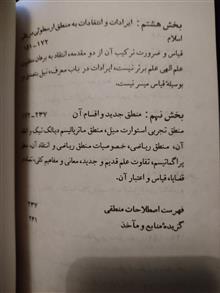 بخش هشتم : ایرادات و انتقادات به منطق ارسطوئی در
اسلام ۱۷۲-۱۹۱
قیاس و ضرورت ترکیب آن از دو مقدمه، انتقاد به برهان
علم الهی علم برتر نیست، ایرادات در باب معرف، نیل بتصدیق
بوسیلهٔ قیاس میسر نیست.
بخش نهم : منطق جدید و اقسام آن ۲۳۷-
منطق تجربی استوارت میل، منطق ماتریالیسم دیالک تیک و انتقاد
آن، منطق ریاضی، خصوصیات منطق ریاضی و انتقاد آن،
پراگماتیسم، تفاوت علوم قدیم و جدید، معانی و مفاهیم کلی،
قضایا، قیاس و اعتبار آن.
فهرست اصطلاحات منطقی ۲۳۷
گزیدهٔ منابع و مآخذ ۲۴۱